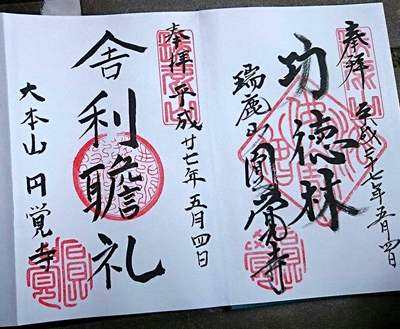 奉拝 平成二七年五月四日
功徳林
瑞鹿山 圓覚寺
奉拝 平成廿七年五月四日
舎利瞻礼
大本山 円覚寺